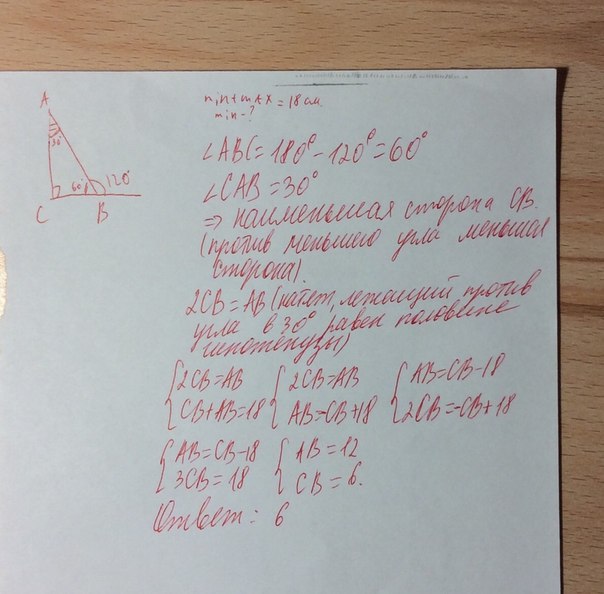 A
30°
60°
120°
C
B
min+max=18см.
min-?
∠ABC=180°-120°=60°
∠CAB=30°
⇒ наименьшая сторона CB.
(против меньшего угла меньшая
сторона).
2CB=AB (катет, лежащий против
угла в 30° равен половине
гипотенузы)
{2CB=AB {2CB=AB {AB=CB-18
{CB+AB=18 {AB=CB+18 {2CB=-CB+18
{AB=CB-18 {AB=12
{3CB=18 {CB=6.
Ответ: 6